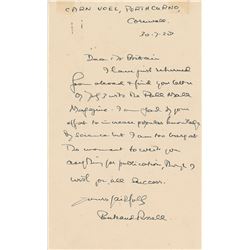 CARN VOEL, PORTHCURNO,
Cornwall.
30.7.22
Dear Mr Britain
I have just returned
from abroad & find your letter
of July 7 with the Pall Mall
Magazine. I am glad of your
effort to increase popular knowledge
of science but I am too busy at
the moment to write you
anything for publication, though I
wish you all success.
Yours faithfully
Bertrand Russell